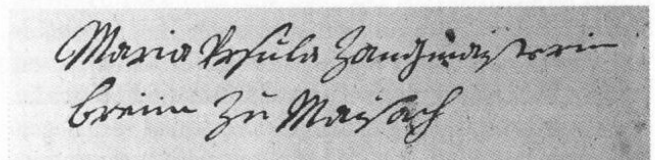 Maria Ursula Zanckmayrin
Breiin zu Maisach